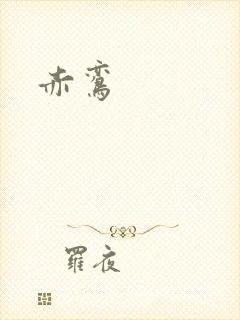 赤鸾
羅夜